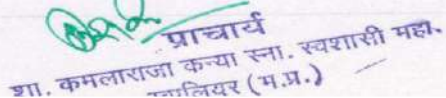 प्राचार्य
शा. कमलाराजा कन्या स्ना. स्वशासी महा.
ग्वालियर (म.प्र.)